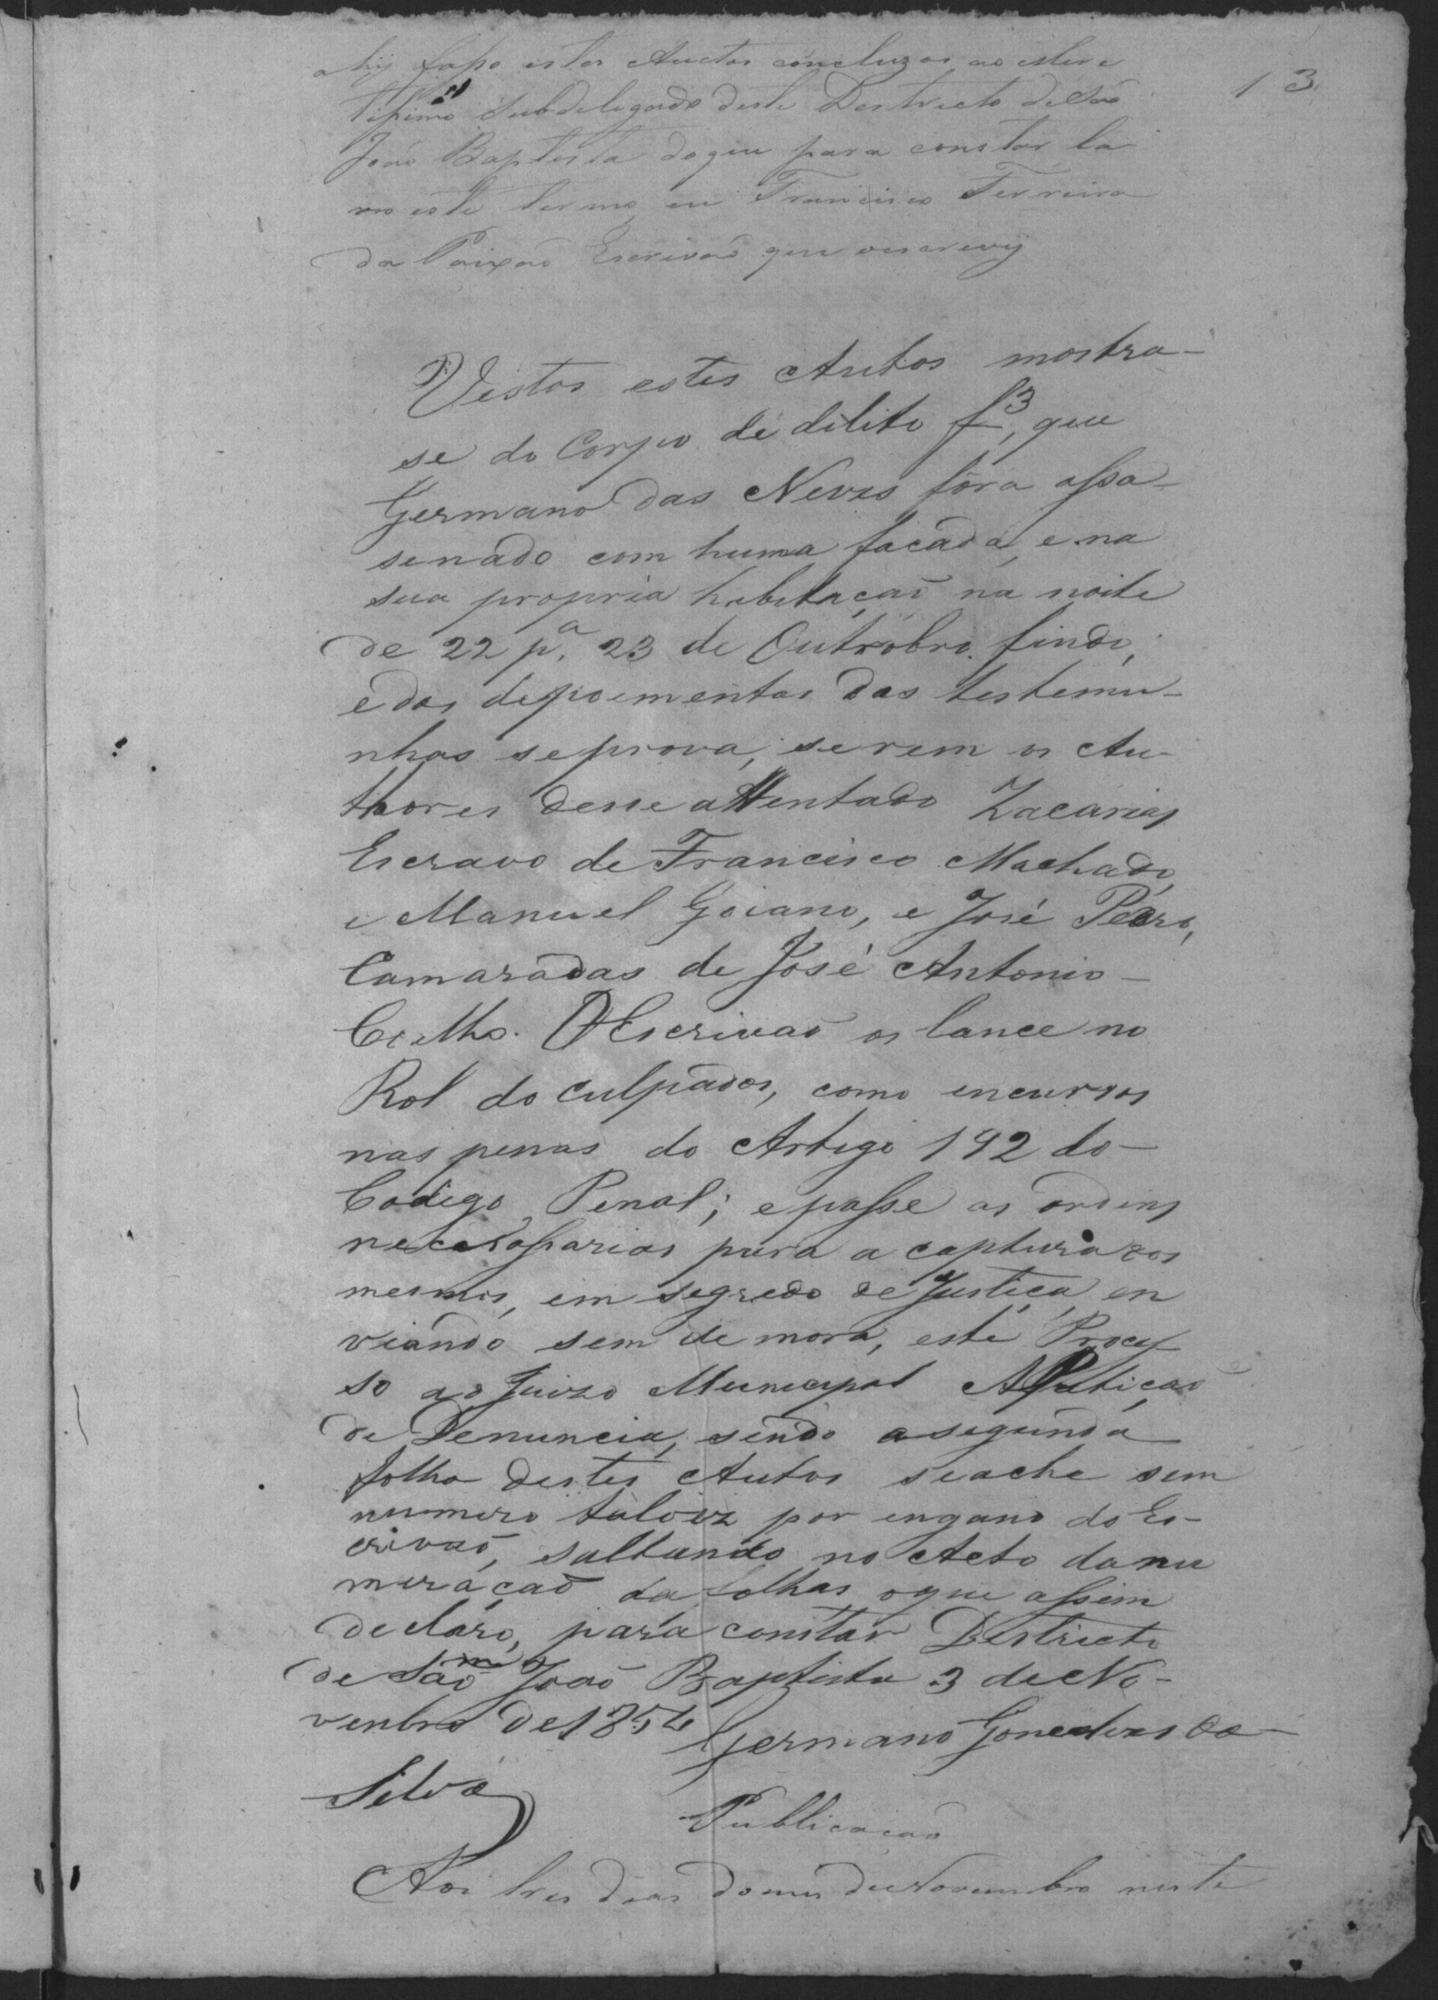 13
faço estes Auctos concluzos ao
Subdelegado deste Destricto de São
João Baptista doque para constar la
vro este termo, eu Francisco Ferreira
da Paixaõ Escrivaõ que oescrevy
Vistos estes Autos mostra-
se do Corpo de dilito f 3, que
Germano das Neves fôra assa-
senado com huma facada, e na
sua propria habitaçaõ na noite
de 22 pª. 23 de Outrobro findo,
e dos depoimentos das testemu-
nhas seprova, serem os Au-
thores desse attentado Zacarias
Escravo de Francisco Machado,
e Manuel Goiano, e José Pedro,
Camaradas de José Antonio
Coelho. O Escrivaõ os lance no
Rol do culpados, como incursos
nas penas do Artigo 192 do
Codigo Penal; e passe as ordens
necessarias para a captura dos
mesmos, em segredo de Justiça, en
viando sem demora, este Proces
so ao Juizo Municipal A Petiçaõ
de Denuncia, sendo a segunda
folha destes Autos se ache sem
numero talvez por engano do Es-
crivaõ, saltando no Acto da nu
meraçaõ da folhas o que assim
declaro, para constar Destricto
de Saõ João Baptista 3 de No-
venbro de 1854
Germano Goncalves da
Silva
Publicaçaõ
Aos tres dias do mes de Novembro neste